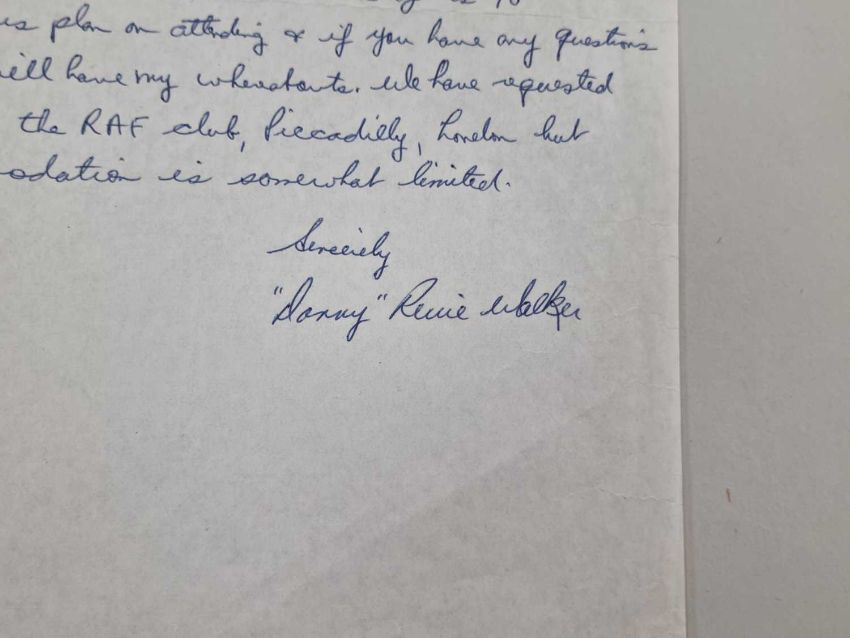 plan on attending & if you have any questions
will have my whereabouts. We have requested
the RAF club, Piccadilly, London but
odation is somewhat limited.
Sincerely
"Danny" Walker